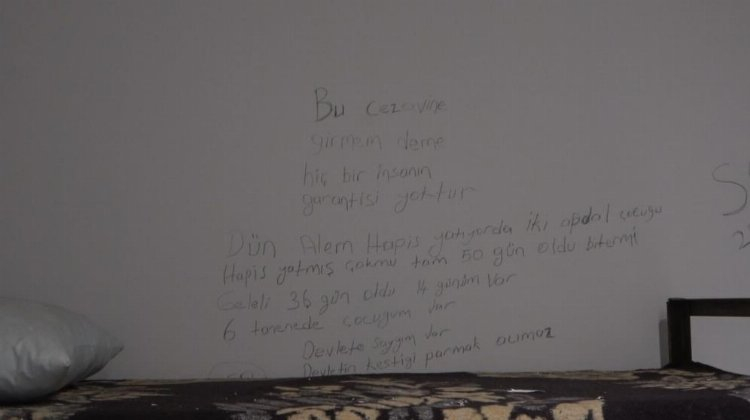 Bu cezavine
girmem deme
hiç bir insanın
garantisi yoktur
Dün Alem Hapis yatıyorda iki abdal çocuğu
Hapis yatmış çokmu tam 50 gün oldu bitermi
Geleli 36 gün oldu 14 günüm var
6 tanenede çocuğum var
Devlete saygım var
Devletin kestiği parmak acımaz